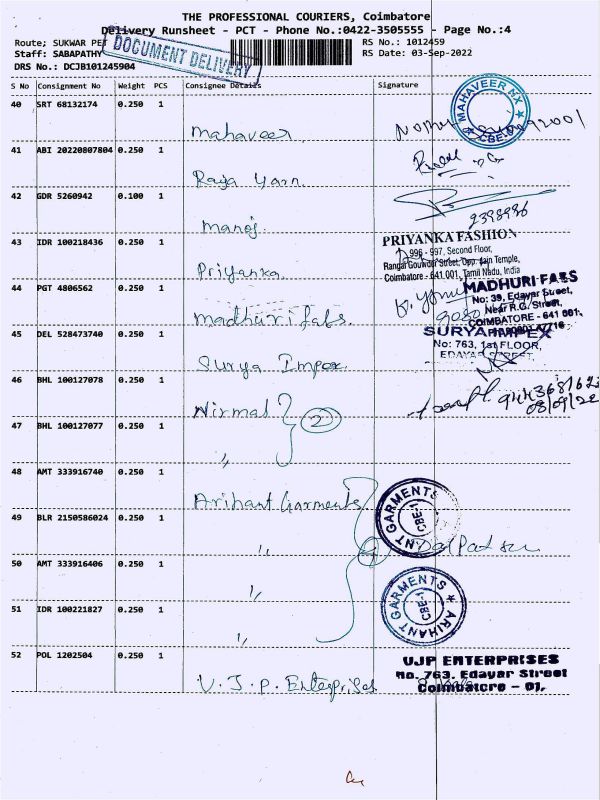 THE PROFESSIONAL COURIERS, Coimbatore
Delivery Runsheet - PCT - Phone No.:0422-3505555 - Page No.:4
Route; SUKWAR PET
RS No.: 1012459
Staff: SABAPATHY
RS Date: 03-Sep-2022
DRS No.: DCJB101245904
DOCUMENT DELIVERY
S No Consignment No Weight PCS Consignee Details Signature
40 SRT 68132174 0.250 1
Mahaveer
MAHAVEER NX
CBE.
41 ABI 20220807804 0.250 1
Raja Yarn.
42 GDR 5260942 0.100 1
Manoj.
2398986
43 IDR 100218436 0.250 1
Priyanka.
PRIYANKA FASHION
996 - 997, Second Floor,
Rangai Gowder Street, Opp. Jain Temple,
Coimbatore - 641 001, Tamil Nadu, India
44 PGT 4806562 0.250 1
Madhuri fabs.
MADHURI FABS
No: 39, Edayar Street,
Near R.G. Street,
COIMBATORE - 641 001.
45 DEL 528473740 0.250 1
Surya Impex.
SURYA IMPEX
No: 763, 1st FLOOR,
EDAYAR STREET,
46 BHL 100127078 0.250 1
Nirmal 2
03/09/22
47 BHL 100127077 0.250 1
"
48 AMT 333916740 0.250 1
Arihant Garments
ARIHANT GARMENTS
CBE-1
49 BLR 2150586024 0.250 1
" 4
50 AMT 333916406 0.250 1
"
ARIHANT GARMENTS
CBE-1
51 IDR 100221827 0.250 1
"
52 POL 1202504 0.250 1
U.J.P. Enterprises
UJP ENTERPRISES
no. 763. Edayar Street
Coimbatore - 01.